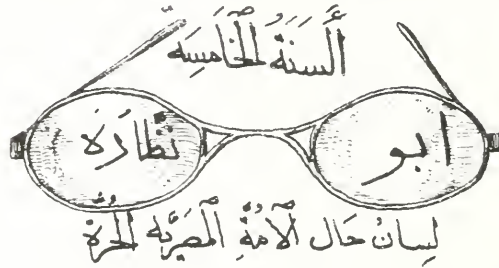 أَلسَنَةُ الخَامِسَه
ابو نظارَه
لِسانُ حَال الأُمَّةِ المَصرِيَّه الحُرَّة